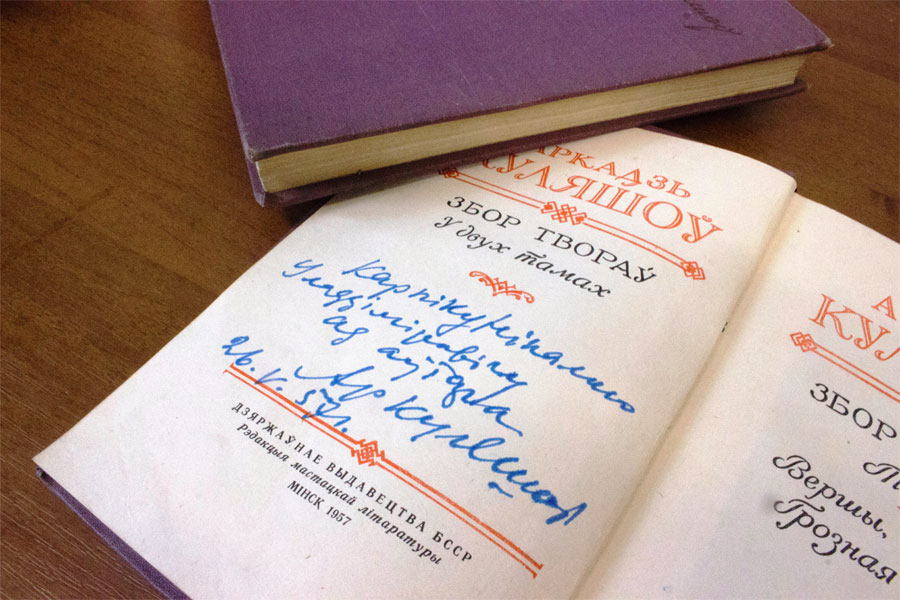 АРКАДЗЬ
КУЛЯШОЎ
ЗБОР ТВОРАЎ
У двух тамах
Карпіку Мікалаю
Уладзіміравічу
ад аўтра
Ар Куляшоў
26.V.
ДЗЯРЖАЎНАЕ ВЫДАВЕЦТВА БССР
рэдакцыя мастацкай літаратуры
МІНСК 1957
А
КУЛ
ЗБОР
Т
Вершы,
Грозная